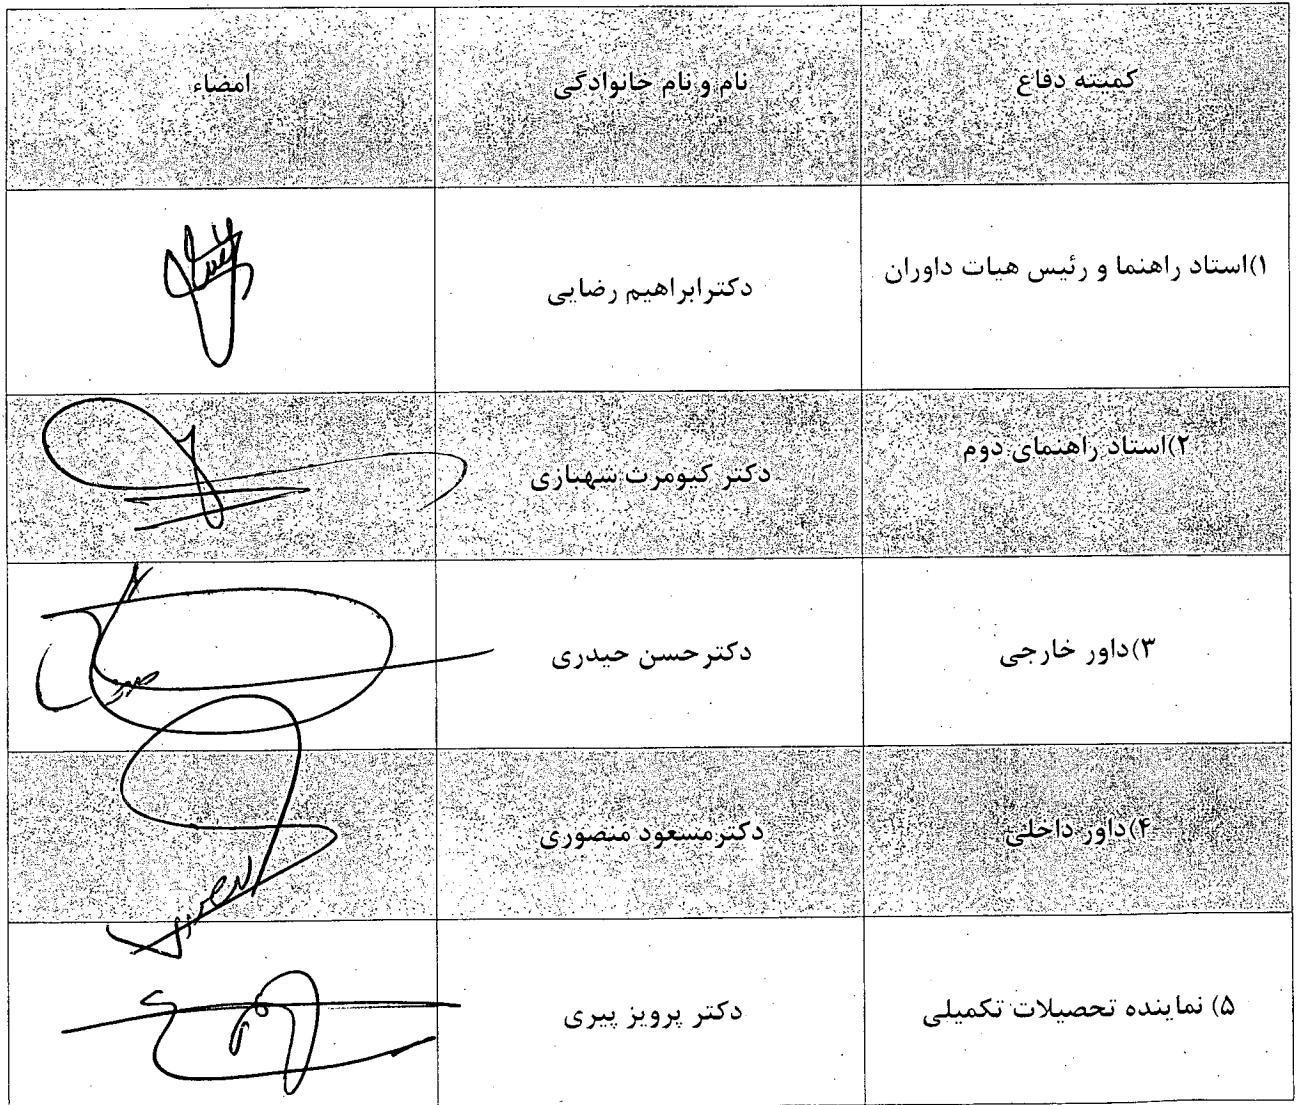 کمیته دفاع
نام و نام خانوادگی
امضاء
۱)استاد راهنما و رئیس هیات داوران
دکترابراهیم رضایی
۲)استاد راهنمای دوم
دکتر کیومرث شهبازی
۳)داور خارجی
دکترحسن حیدری
۴)داور داخلی
دکترمسعود منصوری
۵) نماینده تحصیلات تکمیلی
دکتر پرویز پیری